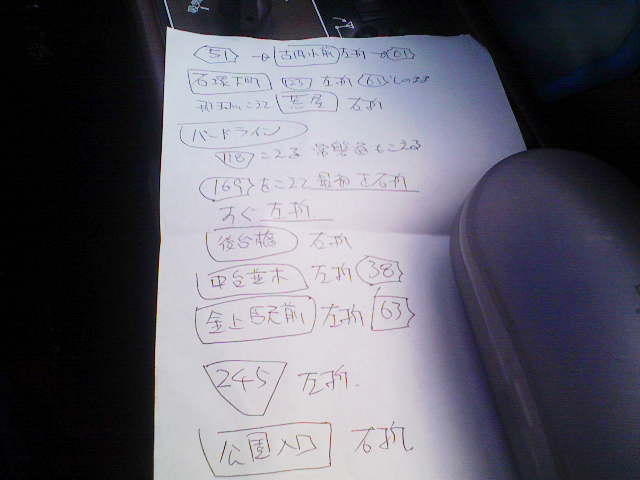 51 → 吉田小前 左折 → 61
石塚下町 123 左折 61
右折
バードライン
118 こえる 常磐道もこえる
169 をこえて 最初を右折
すぐ 左折
後台橋 右折
中台並木 左折 38
金上駅前 左折 63
245 左折
公園入口 右折